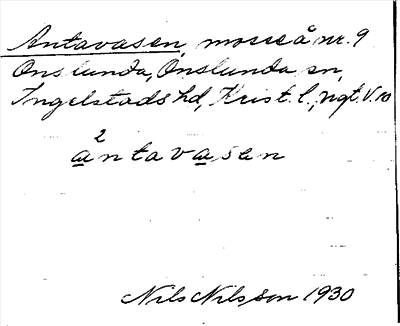 Antavasen, mosse å nr. 9
Onslunda, Onslunda sn,
Ingelstads hd, Krist. l., ngt. V. 10
2
antavasen
Nils Nilsson 1930